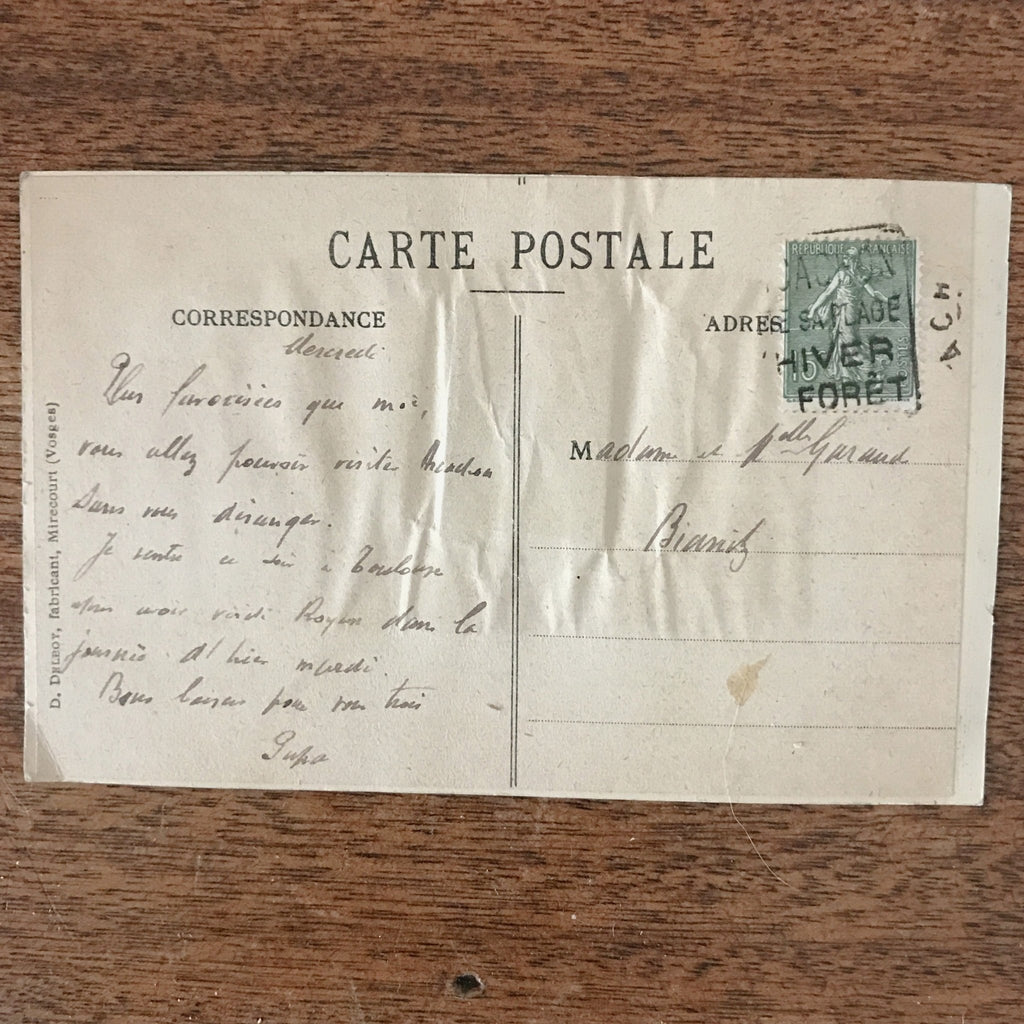 CARTE POSTALE
CORRESPONDANCE
ADRES
REPUBLIQUE FRANÇAISE
SA PLAGE
HIVER
FORÊT
15
Mercredi
Plus favorisées que moi,
vous allez pouvoir visiter Arcachon
sans vous déranger.
Je rentre ce soir à Toulouse
avoir visité Royan dans la
journée d'hier mardi.
Bons baisers pour vous trois
Papa
Madame et Melle Garaud
Biarritz
D. DELBOY, fabricant, Mirecourt (Vosges)